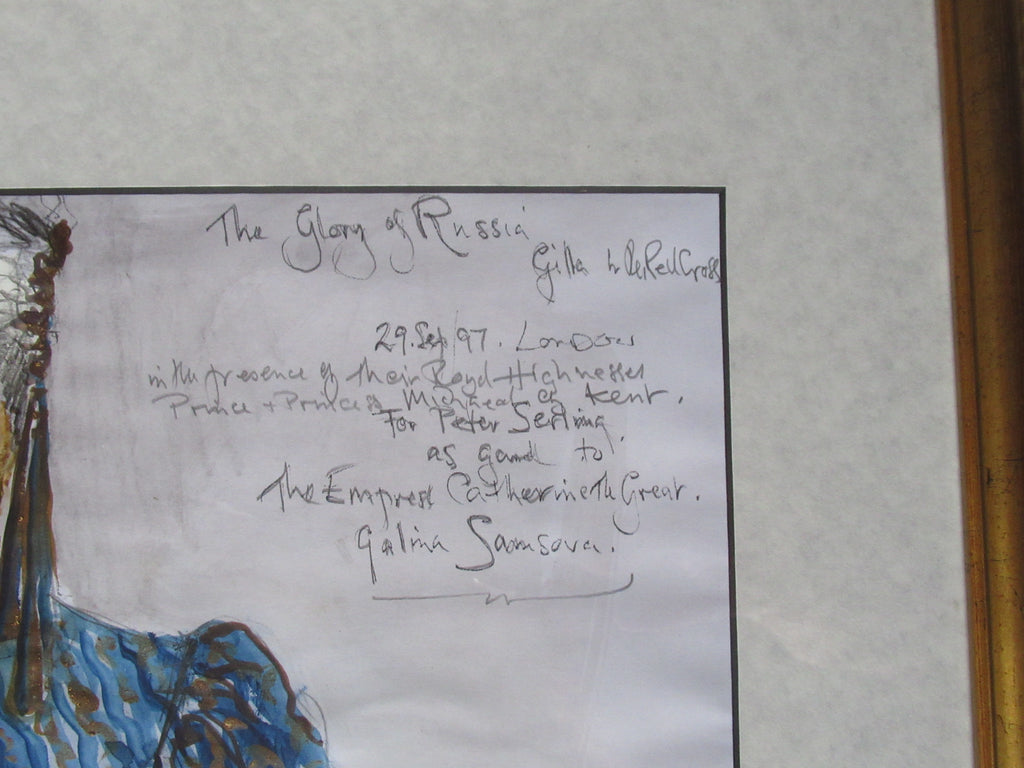 The Glory of Russia
Gilla to the Red Cross
29. Sep 97. London
in the presence of Their Royal Highnesses
Prince + Princess Micheal of Kent.
For Peter
as gaurd to
The Empress Catherine the Great.
Galina Samsova.